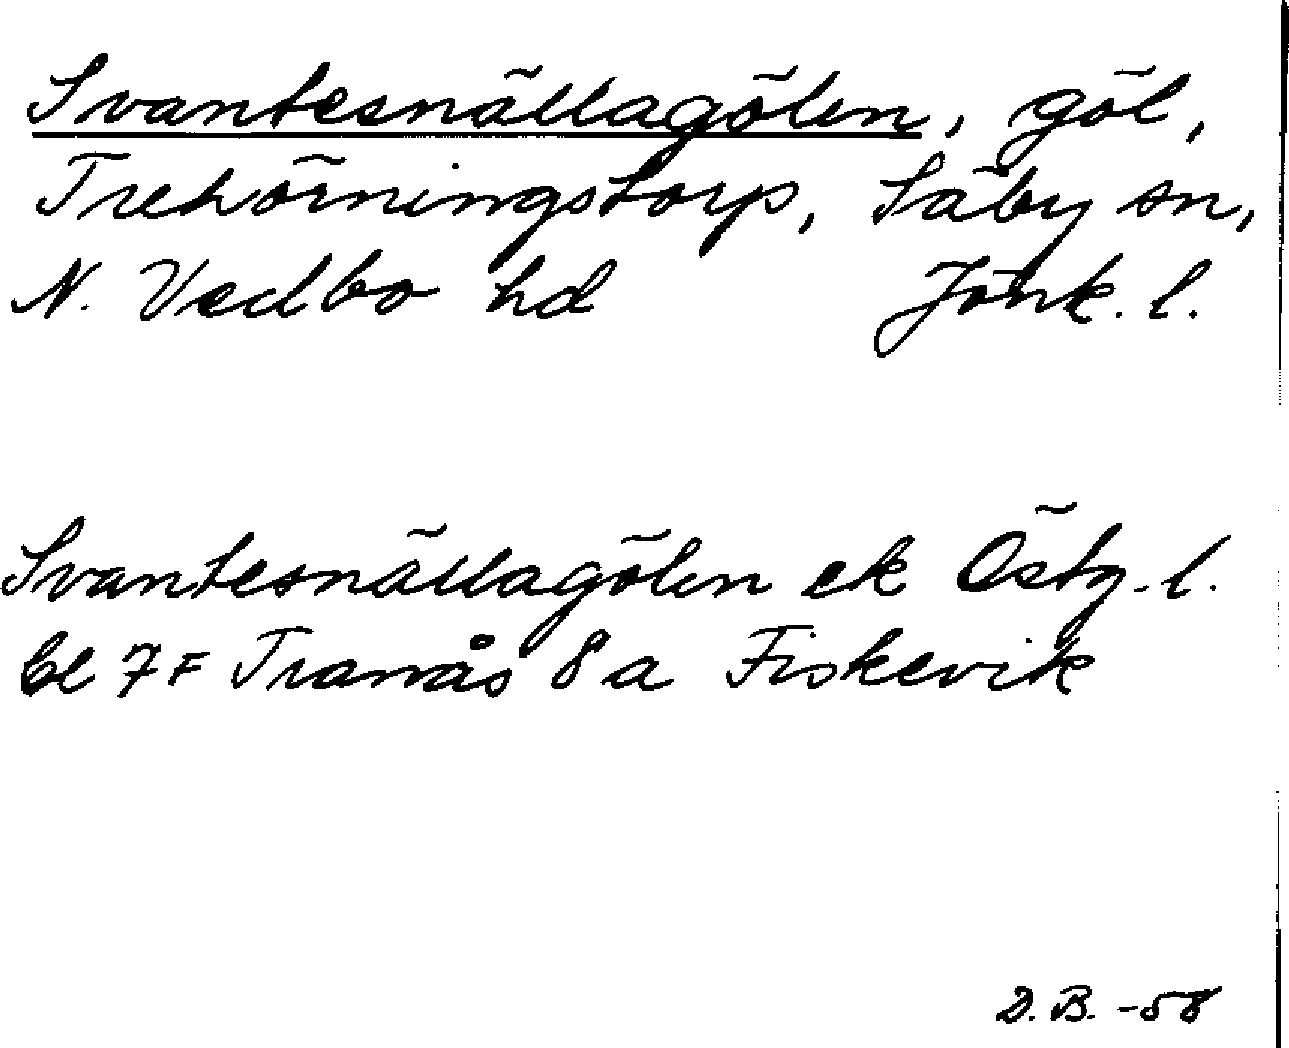 Svantesnällagölen, göl,
Trehörningstorp, Säby sn,
N. Vedbo hd Jönk. l.
Svantesnällagölen ek Östg. l.
bl 7F Tranås 8a Fiskevik
D.B. -58